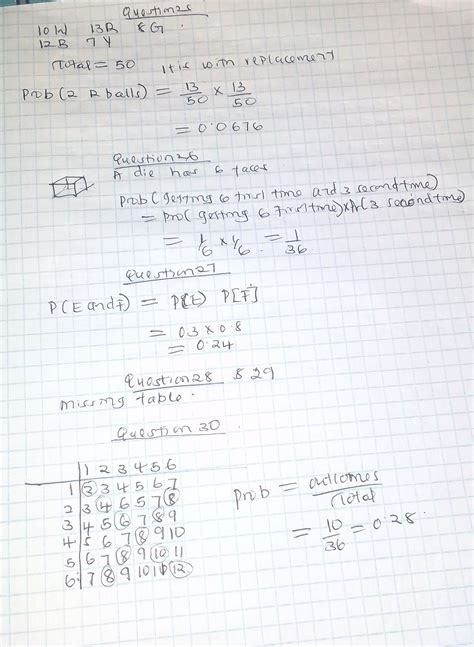 Question 25
10 W 13R 8G
12B 7Y
Total = 50 It is with replacement
Prob (2 R balls) = 13/50 × 13/50
= 0.0676
Question 26
A die has 6 faces
Prob (getting 6 first time and 3 second time)
= Pro( getting 6 first time) × Pr(3 second time)
= 1/6 × 1/6 = 1/36
Question 27
P(E and F) = P(E) P[F]
= 0.3 × 0.8
= 0.24
Question 28 & 29
Missing table.
Question 30
1 2 3 4 5 6
1 2 3 4 5 6 7
2 3 4 6 5 7 8
3 4 5 6 7 8 9
4 5 6 7 8 9 10
5 6 7 8 9 10 11
6 7 8 9 10 11 12
Prob = outcomes/Total
= 10/36 = 0.28